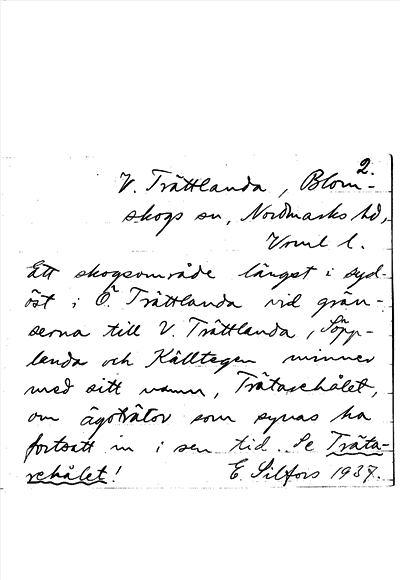 2.
V. Trättlanda, Blom-
skogs sn, Nordmarks hd,
Vrml l.
Ett skogsområde längst i syd-
öst i Ö. Trättlanda vid grän-
serna till V. Trättlanda, Söpp-
lenda och Källtegen minner
med sitt namn, Trätaschålet,
om ägoträtor som synas ha
fortsatt in i sen tid. Se Träta-
rehålet! E. Silfors 1937.